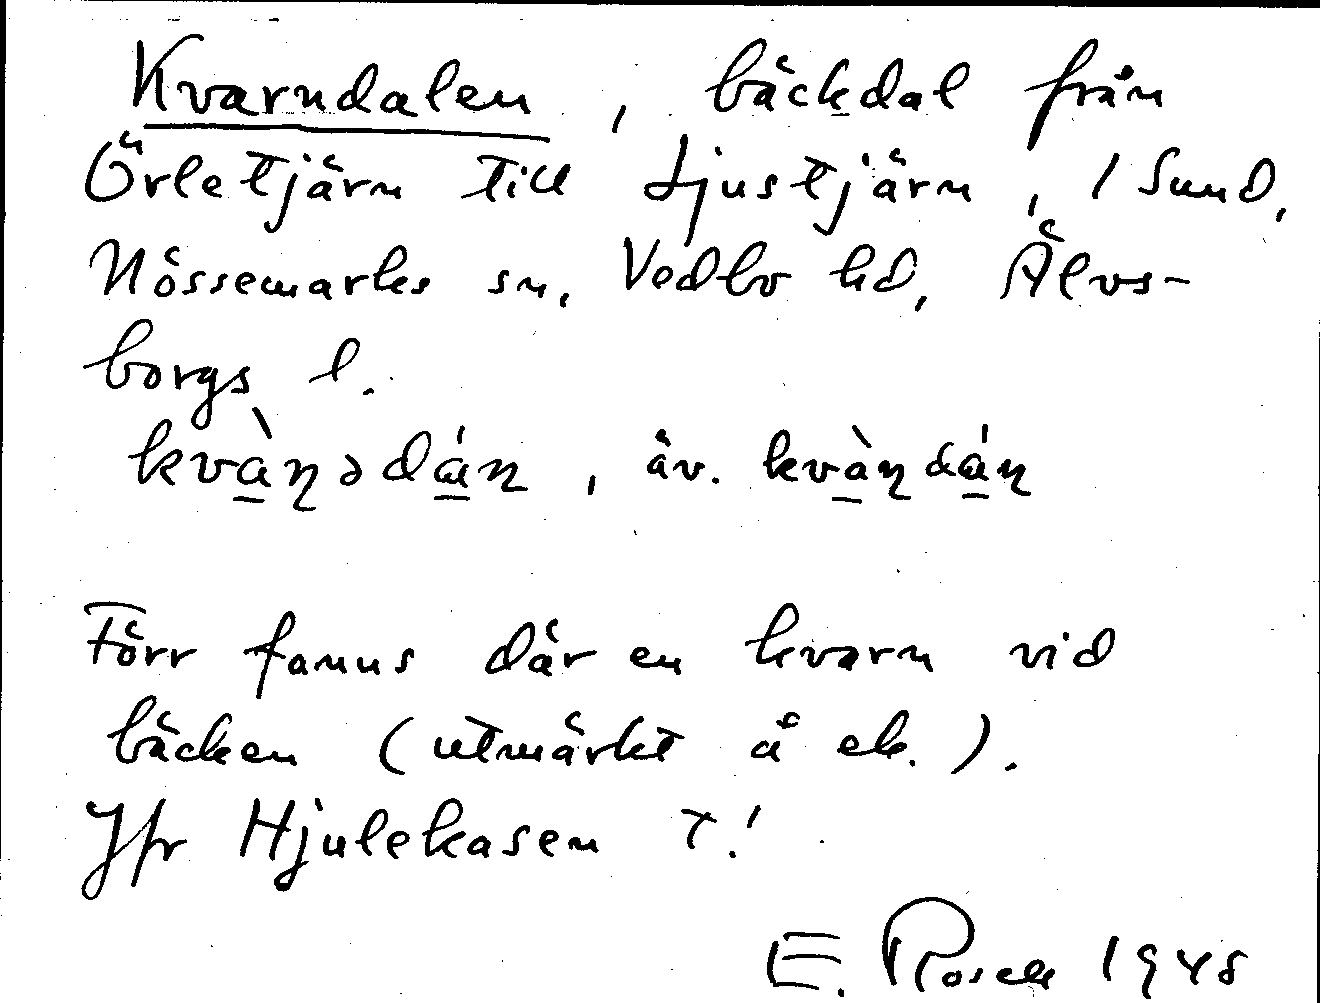 Kvarndalen, bäckdal från
Örletjärn till Ljustjärn, 1 Sund,
Nössemarks sn, Vedbo hd, Älvs-
borgs l.
kvàṇədán, äv. kvàṇdáṇ
Förr fanns där en kvarn vid
bäcken (utmärkt å ek.).
Jfr Hjulekasen t.!
E. Rosell 1948